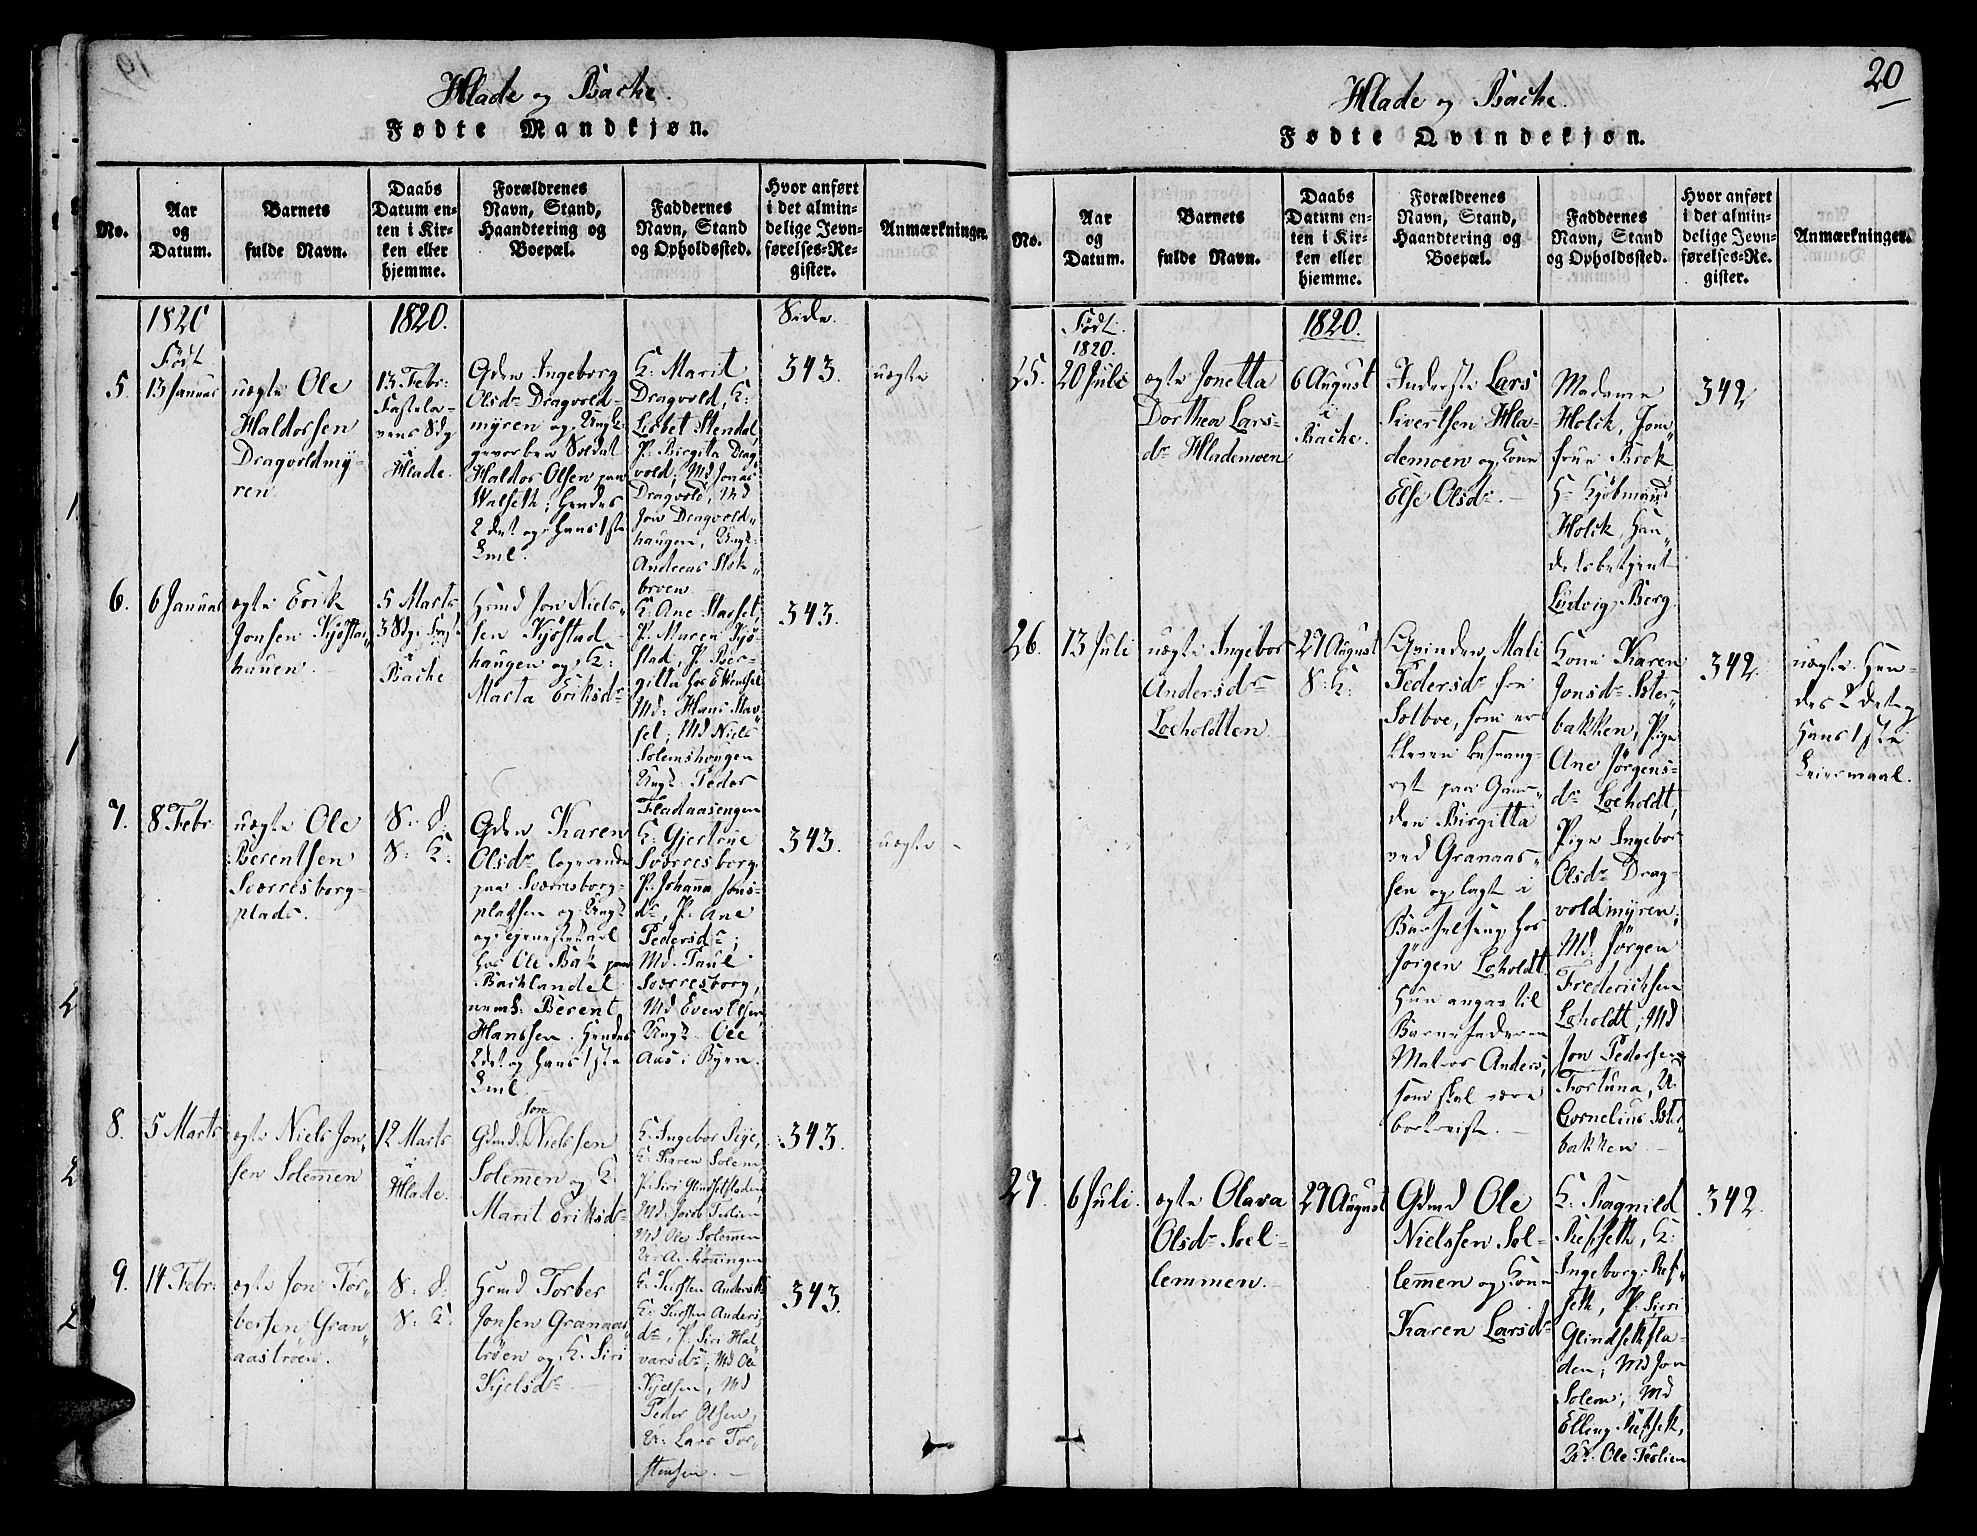 Hlade og Bache.
Fødte Mandkjøn.
No.
Aar
og
Datum.
Barnets
fulde Navn.
Daabs
Datum en-
ten i Kir-
ken eller
hjemme.
Forældrenes
Navn, Stand,
Haandtering og
Boepæl.
Faddernes
Navn, Stand
og Opholdssted.
Hvor anført
i det almin-
delige Jevn-
førelses-Re-
gister.
Anmærkninger.
1820
Født
1820.
Side.
5.
13 Januar
uægte Ole
Haldorsen
Dragvoldmy-
ren
13 Febr:
Fastela-
vens Sdg
i
Hlade.
Gden Ingeborg
Olsdr Dragvold-
myren og Ungk:
gevorben Soldat
Haldor Olsen paa
Walseth; Hendes
2det og Hans 1ste
Leml.
K: Marit
Dragvold, K:
Lisbet Stendal,
P. Birgita Drag
vold; Md Jonas
Dragvold, Md
Jon Dragvold-
haugen, Ungk:
Andreas Stok-
broen
343.
uægte
6.
6 Januar
ægte Erik
Jonsen Kjøstad-
hauen
5 Marts
3 Sdg i Fast
i
Bache
Hmd Jon Niels-
sen Kjøstad
haugen og K:
Marta Eriksdr
K: Ane Stavset,
P. Maren Kjø-
stad, P. Ber-
gitta hos
Md: Hans Stav-
set; Md Niels
Solemshougen
Ungk: Peder
Fladaasengen
343.
7.
8 Febr
uægte Ole
Berentsen
Sværresborg-
plads.
S: d:
S: K:
Gden Karen
Olsdr logerende
paa Sværresborg-
pladsen og Ungk
og tjenestekarl
hos Ole Bak paa
Baklandet
nemh: Berent
Hanssen. Hendes
2det og Hans 1ste
Leml.
K: Gjertrue
Sværresborg,
P. Johanna Jons-
dr, P. Ane
Pedersdr;
Md. Paul
Sværresborg,
Md Even Olsen,
Ungk: Ole
Aas i Byen.
343.
uægte
8.
5 Marts
ægte Niels Jon-
sen Solemen
12 Marts
i
Hlade.
Jon
Gdmd. Nielssen
Solemen og K:
Marit Eriksdr
K: Ingebor Rye,
K: Karen Solem
P. Siri Glindsetfladen,
Md: Jacob Teslien
Md Ole Solemmen
U: A. Rønningen
343.
9.
14 Febr:
ægte Jon Tor-
bersen Gran-
aastrøen.
S: d:
S: K:
Hmd Torber
Jonsen Granaas-
trøen og K. Siri
Kjelsdr
K: Kirsten Andersdr
K: Kirsten Anders-
dr, P. Siri Hal-
varsdr; Md Ole
Kjelsen, Md
Peder Olsen,
U: Lars Tor-
stensen.
343.
20
Hlade og Bache.
Fødte Qvindekjøn.
No.
Aar
og
Datum.
Barnets
fulde Navn.
Daabs
Datum en-
ten i Kir-
ken eller
hjemme.
Forældrenes
Navn, Stand,
Haandtering og
Boepæl.
Faddernes
Navn, Stand
og Opholdssted.
Hvor anført
i det almin-
delige Jevn-
førelses-Re-
gister.
Anmærkninger.
Født.
1820.
1820.
25.
20 Juli
ægte Jonetta
Dorthea Lars-
dr Hlademoen
6 August
i
Bache.
Inderste Lars
Sivertsen Hla-
demoen og Kone
Else Olsdr.
Madame
Holck, Jom-
frue Brok
Hr Kjøbmand
Holck, Han-
delsbetjent
Ludvig Berg.
342
26.
13 Juli
uægte Ingebor
Andersdr
Loeholdten
27 August
S: K:
Qvinden Mali
Pedersdr fra
Selboe, som er
bleven besvang-
ret paa Gaar-
den Birgitta
ved Granaas-
sen og lagt i
Barselseng hos
Jørgen Loholdt
Hun angav til
Barnefaderen
Matros Anders,
som skal være
bortreist.
Kone Karen
Jonsdr Øster-
bakken, Pige
Ane Jørgens-
dr Loeholdt,
Pige Ingebor
Olsdr Drag-
voldmyren;
Md. Jørgen
Frederichsen
Loholdt, Md
Jon Pedersen
Fortuna, U.
Cornelius Øster-
bakken
342.
uægte Hen-
des 2det og
Hans 1ste
Leiermaal.
27.
6 Juli.
ægte Olava
Olsdr Soel-
lemmen.
27 August
Gdmd Ole
Nielssen Sol-
lemen og Kone
Karen Larsdr
K: Ragnild
Refseth, K:
Ingeborg Ref-
seth, P. Siri
Glindsetfla-
den; Md Jon
Solem; Md
Elling Refseth,
U: Ole Teslien
342.